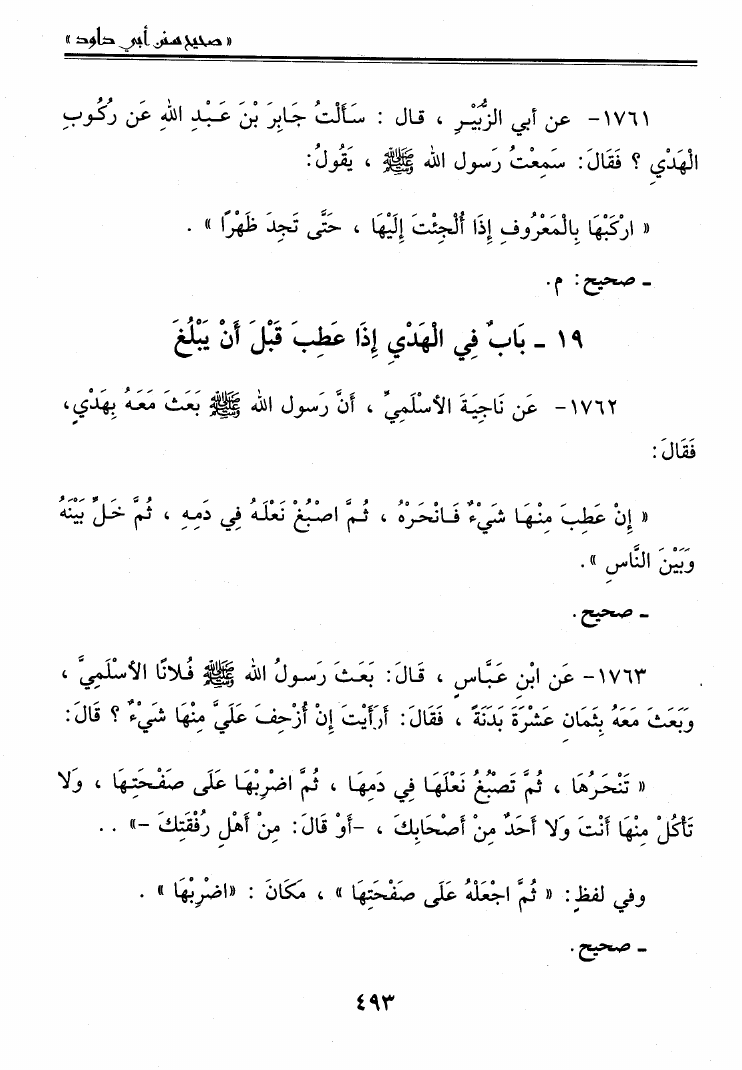 « صحيح سنن أبي داود »
١٧٦١- عن أبي الزُّبَيْـرِ ، قـال : سَـأَلْتُ جَـابِرَ بْنَ عَـبْدِ اللهِ عَن رُكُـوبِ
الْهَدْيِ ؟ فَقَالَ: سَمِعْتُ رَسول الله ﷺ ، يَقُولُ:
« ارْكَبْهَا بِالْمَعْرُوفِ إِذَا أُلْجِئْتَ إِلَيْهَا ، حَتَّى تَجِدَ ظَهْرًا » .
ـ صحيح: م.
١٩ ـ بَابٌ فِي الْهَدْيِ إِذَا عَطِبَ قَبْلَ أَنْ يَبْلُغَ
١٧٦٢- عَن نَاجِيَةَ الأسْلَمِيِّ ، أنَّ رَسول الله ﷺ بَعَثَ مَعَـهُ بِهَدْيٍ،
فَقَالَ:
« إِنْ عَطِبَ مِنْـهَـا شَيْءٌ فَـانْحَرْهُ ، ثُـمَّ اصْبُغْ نَعْلَـهُ فِي دَمِهِ ، ثُمَّ خَـلِّ بَيْنَهُ
وَبَيْنَ النَّاسِ ».
ـ صحيح.
١٧٦٣- عَن ابْنِ عَبَّاسٍ ، قَـالَ: بَعَـثَ رَسـولُ الله ﷺ فُـلانًا الأسْلَمِيَّ ،
وَبَعَثَ مَعَهُ بِثَمَانِ عَشْرَةَ بَدَنَةً ، فَقَالَ: أَرَأَيْتَ إِنْ أُزْحِفَ عَلَيَّ مِنْهَا شَيْءٌ ؟ قَالَ:
« تَنْحَرُهَا ، ثُمَّ تَصْبُغُ نَعْلَهَا فِي دَمِهَا ، ثُمَّ اضْرِبْهَا عَلَى صَفْحَتِـهَا ، وَلا
تَأْكُلْ مِنْهَا أَنْتَ وَلا أَحَدٌ مِنْ أَصْحَابِكَ ، -أَوْ قَالَ: مِنْ أَهْلِ رُفْقَتِكَ -» . .
وفي لفظٍ: « ثُمَّ اجْعَلْهُ عَلَى صَفْحَتِهَا » ، مَكَانَ : «اضْرِبْهَا » .
ـ صحيح.
٤٩٣